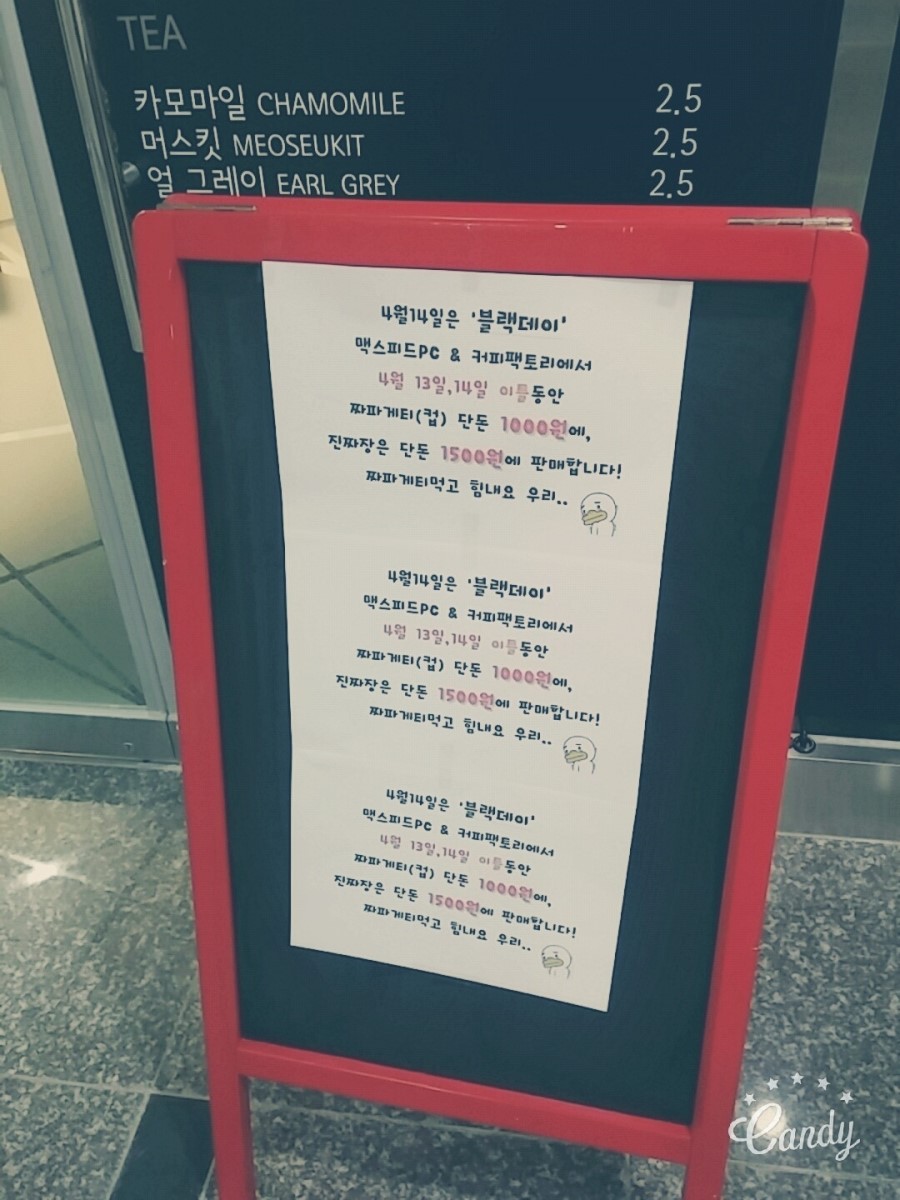 TEA
카모마일 CHAMOMILE 2.5
머스킷 MEOSEUKIT 2.5
얼 그레이 EARL GREY 2.5
4월14일은 '블랙데이'
맥스피드PC & 커피팩토리에서
4월 13일,14일 이틀동안
짜파게티(컵) 단돈 1000원에,
진짜장은 단돈 1500원에 판매합니다!
짜파게티먹고 힘내요 우리..
4월14일은 '블랙데이'
맥스피드PC & 커피팩토리에서
4월 13일,14일 이틀동안
짜파게티(컵) 단돈 1000원에,
진짜장은 단돈 1500원에 판매합니다!
짜파게티먹고 힘내요 우리..
4월14일은 '블랙데이'
맥스피드PC & 커피팩토리에서
4월 13일,14일 이틀동안
짜파게티(컵) 단돈 1000원에,
진짜장은 단돈 1500원에 판매합니다!
짜파게티먹고 힘내요 우리..
Candy